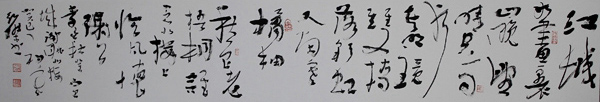 江城
如畫裏
山晚望
晴空兩
水
夾明鏡
雙橋
落彩虹
人烟寒
橘柚
秋色老
梧桐誰
念北樓上
臨風懷
謝公